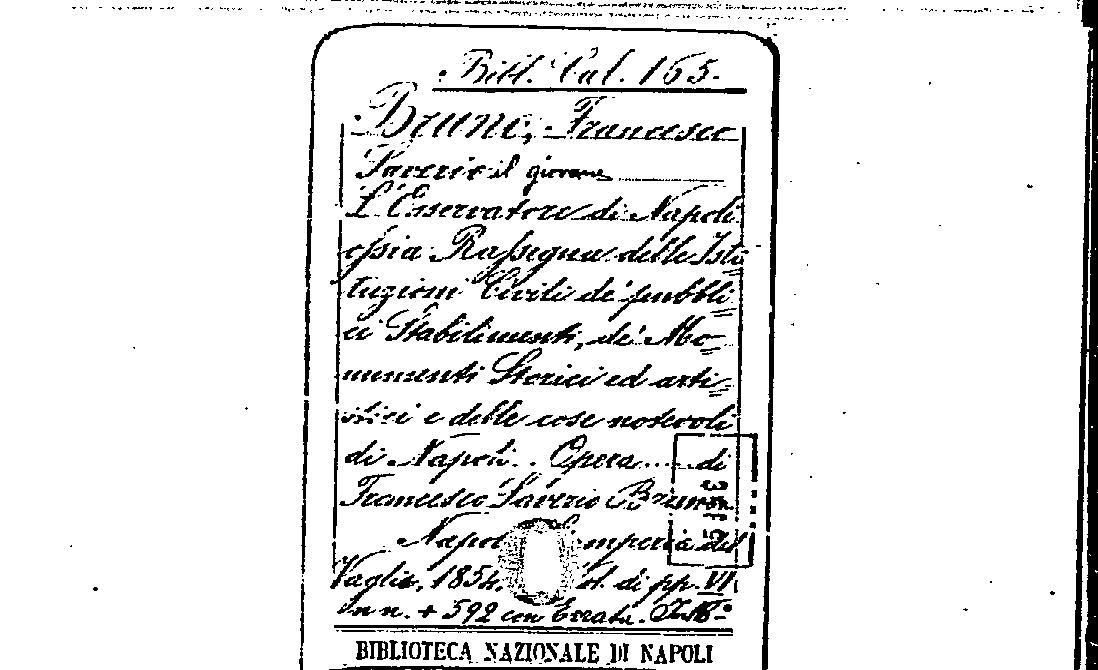 Bibl. Cal. 165.
Bruno, Francesco
Saverio il giovane
L'Osservatore di Napoli
ossia Rassegna delle Isti
tuzioni Civili de' pubbli=
ci Stabilimenti, de' Mo=
numenti Storici ed arti=
stici e delle cose notevoli
di Napoli. . Opera......di
Francesco Saverio Bruno
Napoli del
Vaglio, 1854. di pp. VI
nn. + 592 con Errata. In
BIBLIOTECA NAZIONALE DI NAPOLI